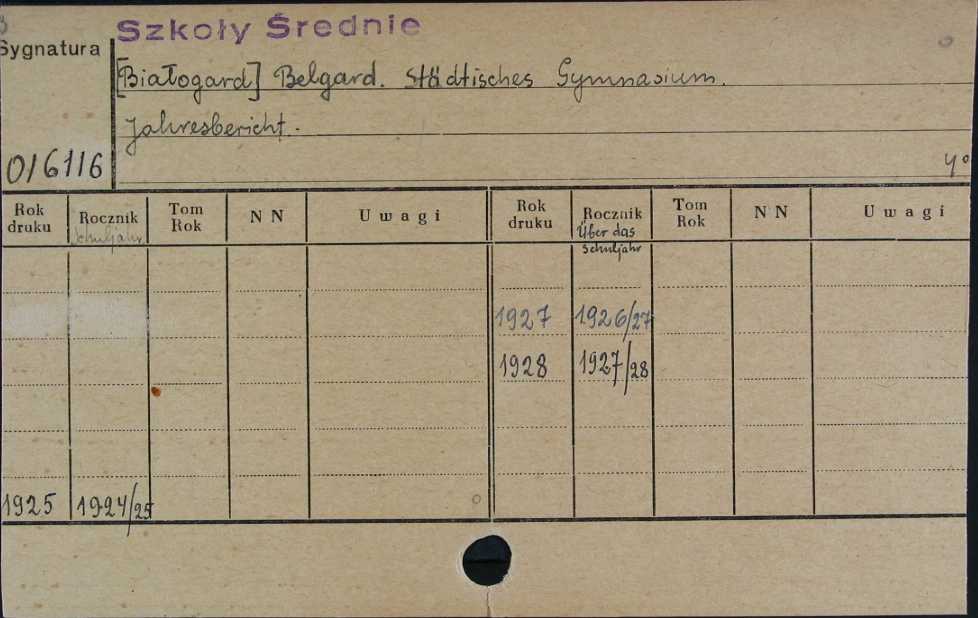 Szkoły Średnie
Sygnatura
[Białogard] Belgard. Städtisches Gymnasium.
Jahresbericht.
0/6116
4°
Rok druku Rocznik Tom Rok N N Uwagi Rok druku Rocznik Tom Rok N N Uwagi
Schuljahr Über das Schuljahr
1927 1926/27
1928 1927/28
1925 1924/25